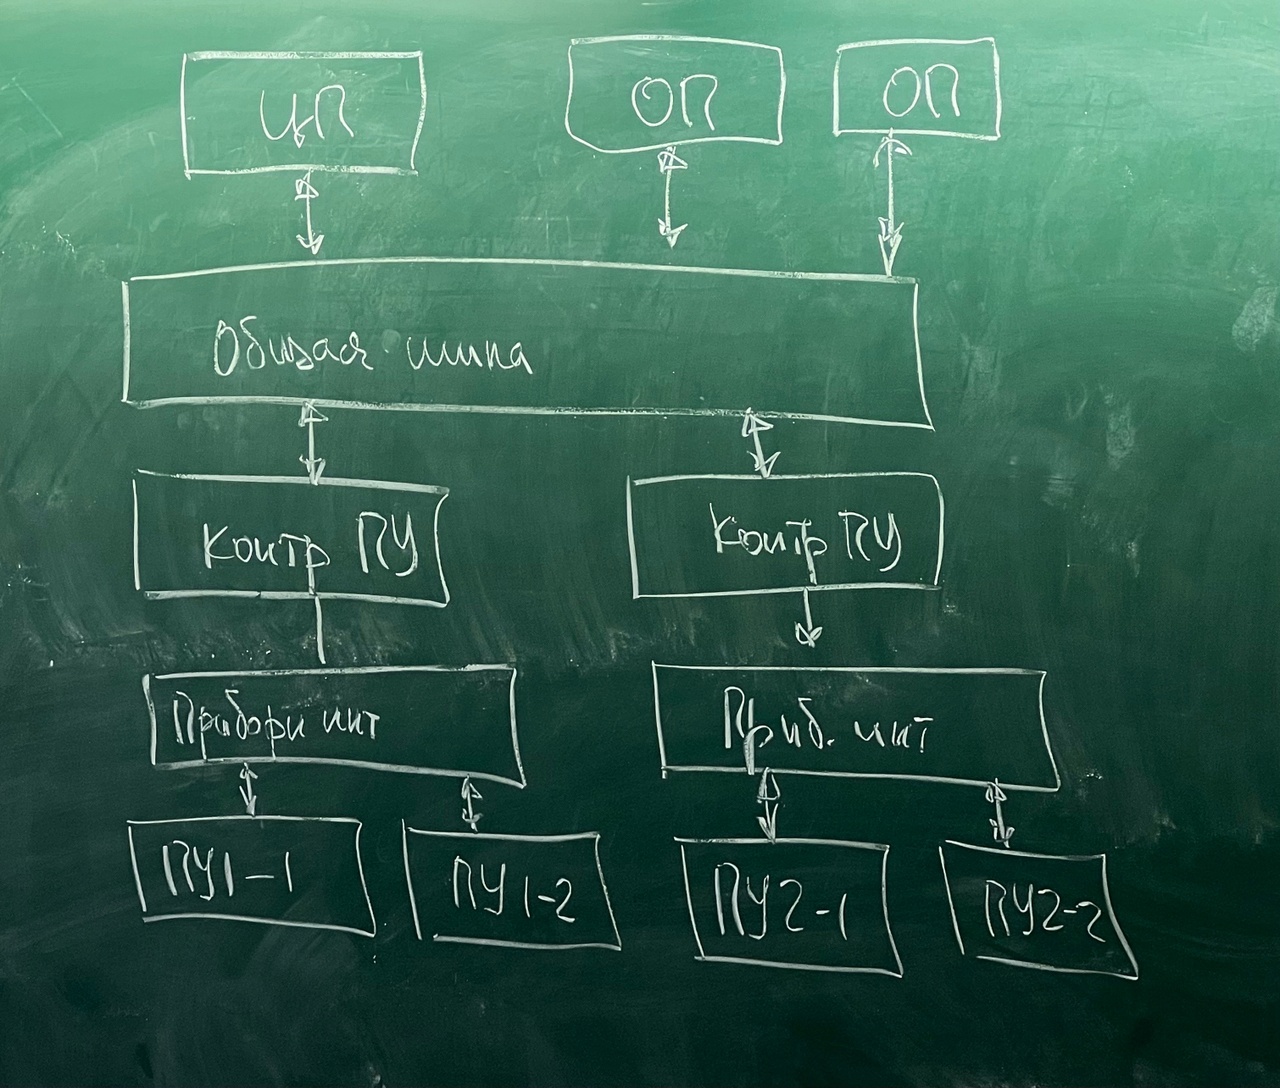 ЦП
ОП
ОП
Общая шина
Контр ПУ
Контр ПУ
Приборн инт
Приб. инт
ПУ1-1
ПУ1-2
ПУ2-1
ПУ2-2